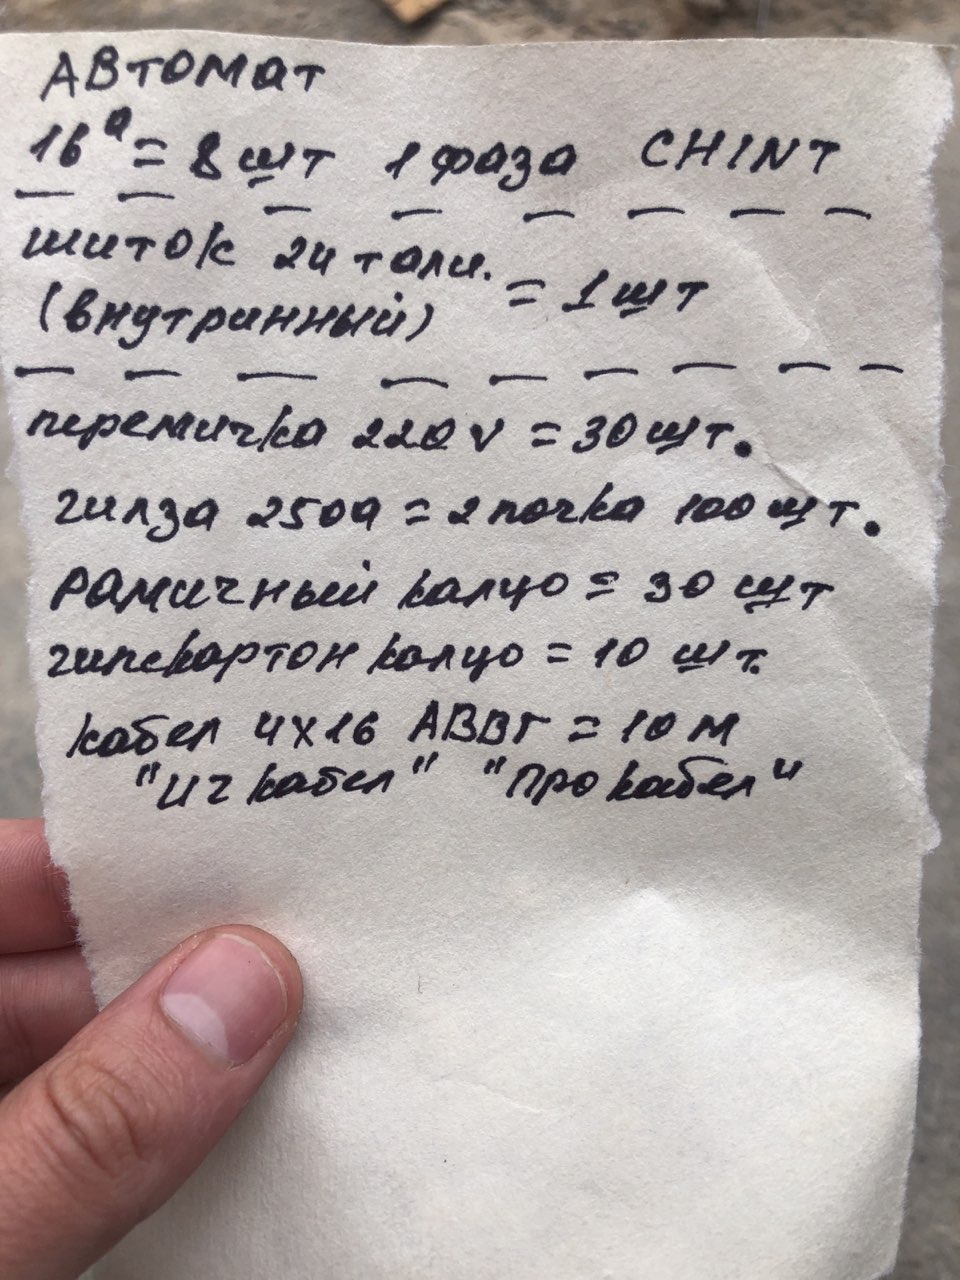 АВтомат
16а = 8 шт 1 фаза CHINT
шиток 24 тали.
(внутринный) = 1 шт
перемичка 220 v = 30 шт.
гилза 250а = 2 почка 100 шт.
рамичный калцо = 30 шт
гипскартон калцо = 10 шт.
кабел 4х16 АВВГ = 10 м
"Ич кабел" "Про кабел"